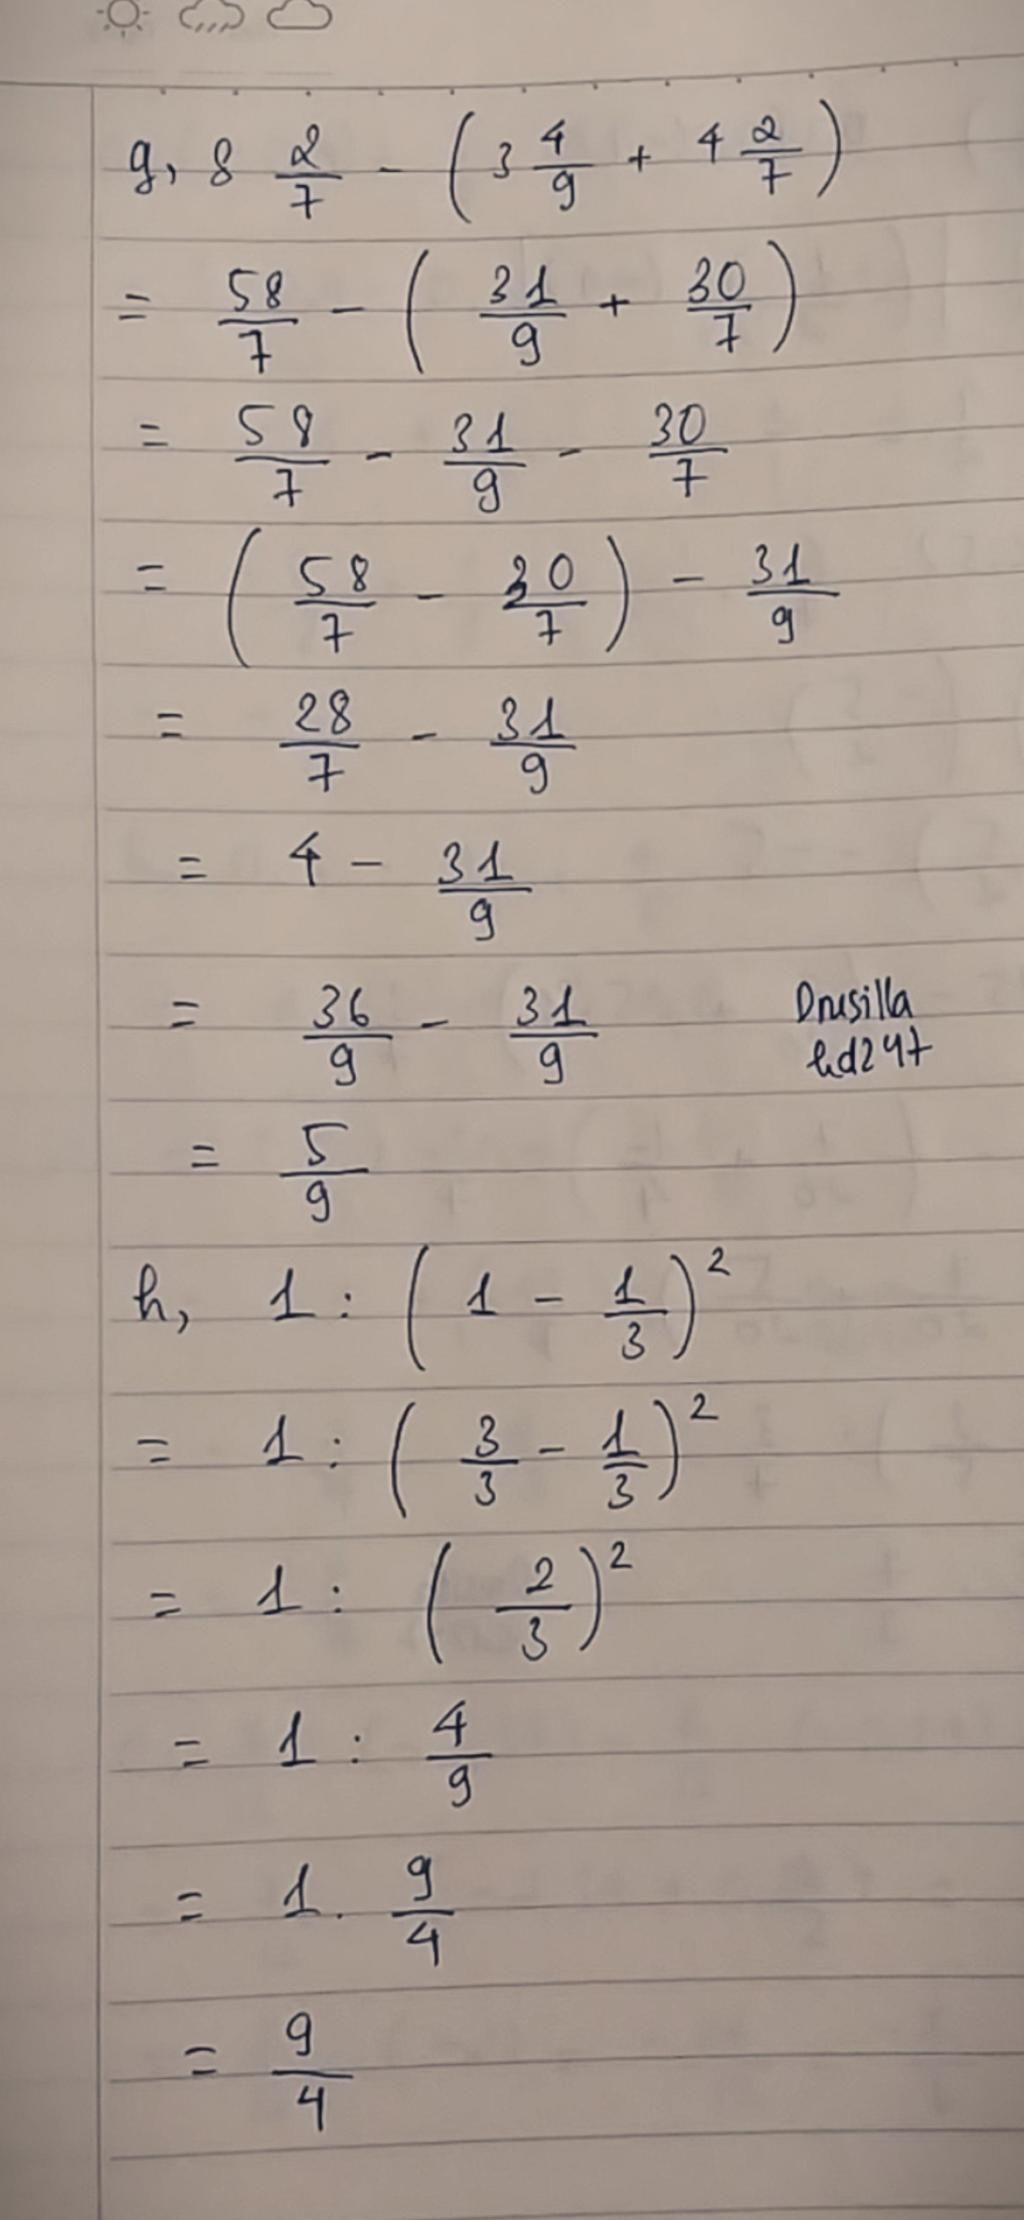 g, 8 2/7 - (3 4/9 + 4 2/7)
= 58/7 - (31/9 + 30/7)
= 58/7 - 31/9 - 30/7
= (58/7 - 30/7) - 31/9
= 28/7 - 31/9
= 4 - 31/9
= 36/9 - 31/9
Drusilla
hd247
= 5/9
h, 1 : (1 - 1/3)²
= 1 : (3/3 - 1/3)²
= 1 : (2/3)²
= 1 : 4/9
= 1 . 9/4
= 9/4